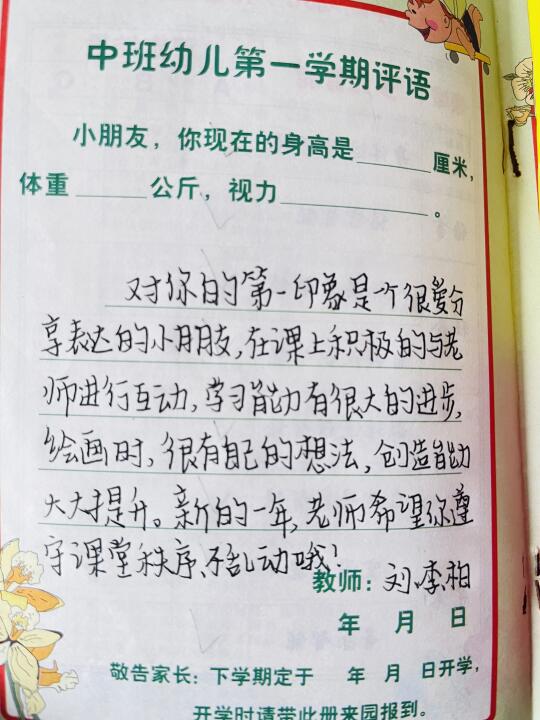 中班幼儿第一学期评语
小朋友，你现在的身高是______厘米，
体重______公斤，视力____________。
对你的第一印象是一个很爱分
享表达的小朋友,在课上积极的与老
师进行互动,学习能力有很大的进步,
绘画时,很有自己的想法,创造能力
大大提升。新的一年,老师希望你遵
守课堂秩序、不乱动哦!
教师：刘、李、柏
年 月 日
敬告家长：下学期定于 年 月 日开学，
开学时请带此册来园报到。